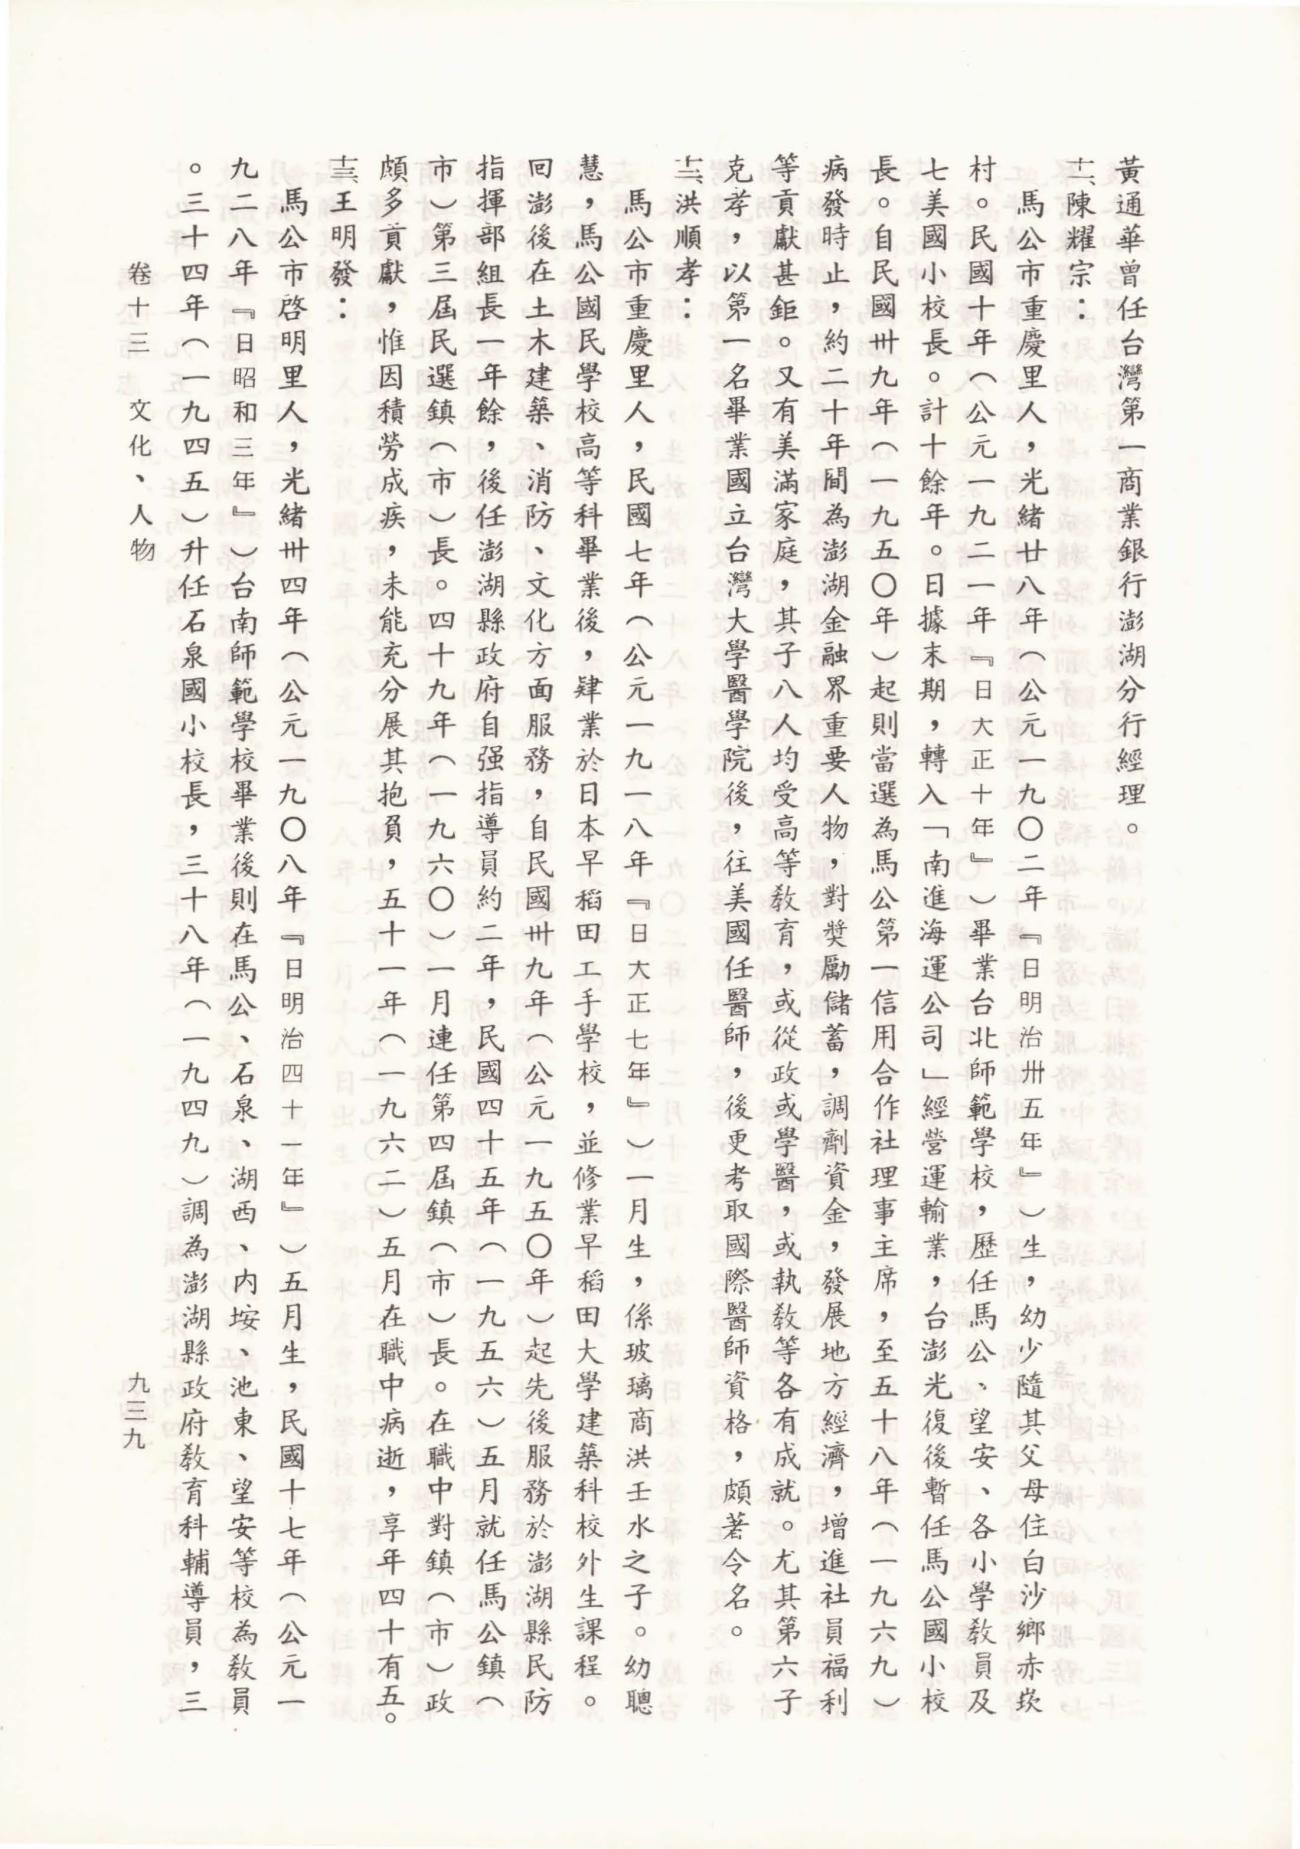 黃通華曾任台灣第一商業銀行澎湖分行經理。
十一、陳耀宗：
馬公市重慶里人，光緒廿八年（公元一九〇二年『日明治卅五年』）生，幼少隨其父母住白沙鄉赤崁
村。民國十年（公元一九二一年『日大正十年』）畢業台北師範學校，歷任馬公、望安、各小學教員及
七美國小校長。計十餘年。日據末期，轉入「南進海運公司」經營運輸業，台澎光復後暫任馬公國小校
長。自民國卅九年（一九五〇年）起則當選為馬公第一信用合作社理事主席，至五十八年（一九六九）
病發時止，約二十年間為澎湖金融界重要人物，對獎勵儲蓄，調劑資金，發展地方經濟，增進社員福利
等貢獻甚鉅。又有美滿家庭，其子八人均受高等教育，或從政或學醫，或執教等各有成就。尤其第六子
克孝，以第一名畢業國立台灣大學醫學院後，往美國任醫師，後更考取國際醫師資格，頗著令名。
十二、洪順孝：
馬公市重慶里人，民國七年（公元一九一八年『日大正七年』）一月生，係玻璃商洪壬水之子。幼聰
慧，馬公國民學校高等科畢業後，肄業於日本早稻田工手學校，並修業早稻田大學建築科校外生課程。
回澎後在土木建築、消防、文化方面服務，自民國卅九年（公元一九五〇年）起先後服務於澎湖縣民防
指揮部組長一年餘，後任澎湖縣政府自强指導員約二年，民國四十五年（一九五六）五月就任馬公鎮（
市）第三屆民選鎮（市）長。四十九年（一九六〇）一月連任第四屆鎮（市）長。在職中對鎮（市）政
頗多貢獻，惟因積勞成疾，未能充分展其抱負，五十一年（一九六二）五月在職中病逝，享年四十有五。
十三、王明發：
馬公市啓明里人，光緒卅四年（公元一九〇八年『日明治四十一年』）五月生，民國十七年（公元一
九二八年『日昭和三年』）台南師範學校畢業後則在馬公、石泉、湖西、内垵、池東、望安等校為教員
。三十四年（一九四五）升任石泉國小校長，三十八年（一九四九）調為澎湖縣政府教育科輔導員，三
卷十三　文化、人物
九三九